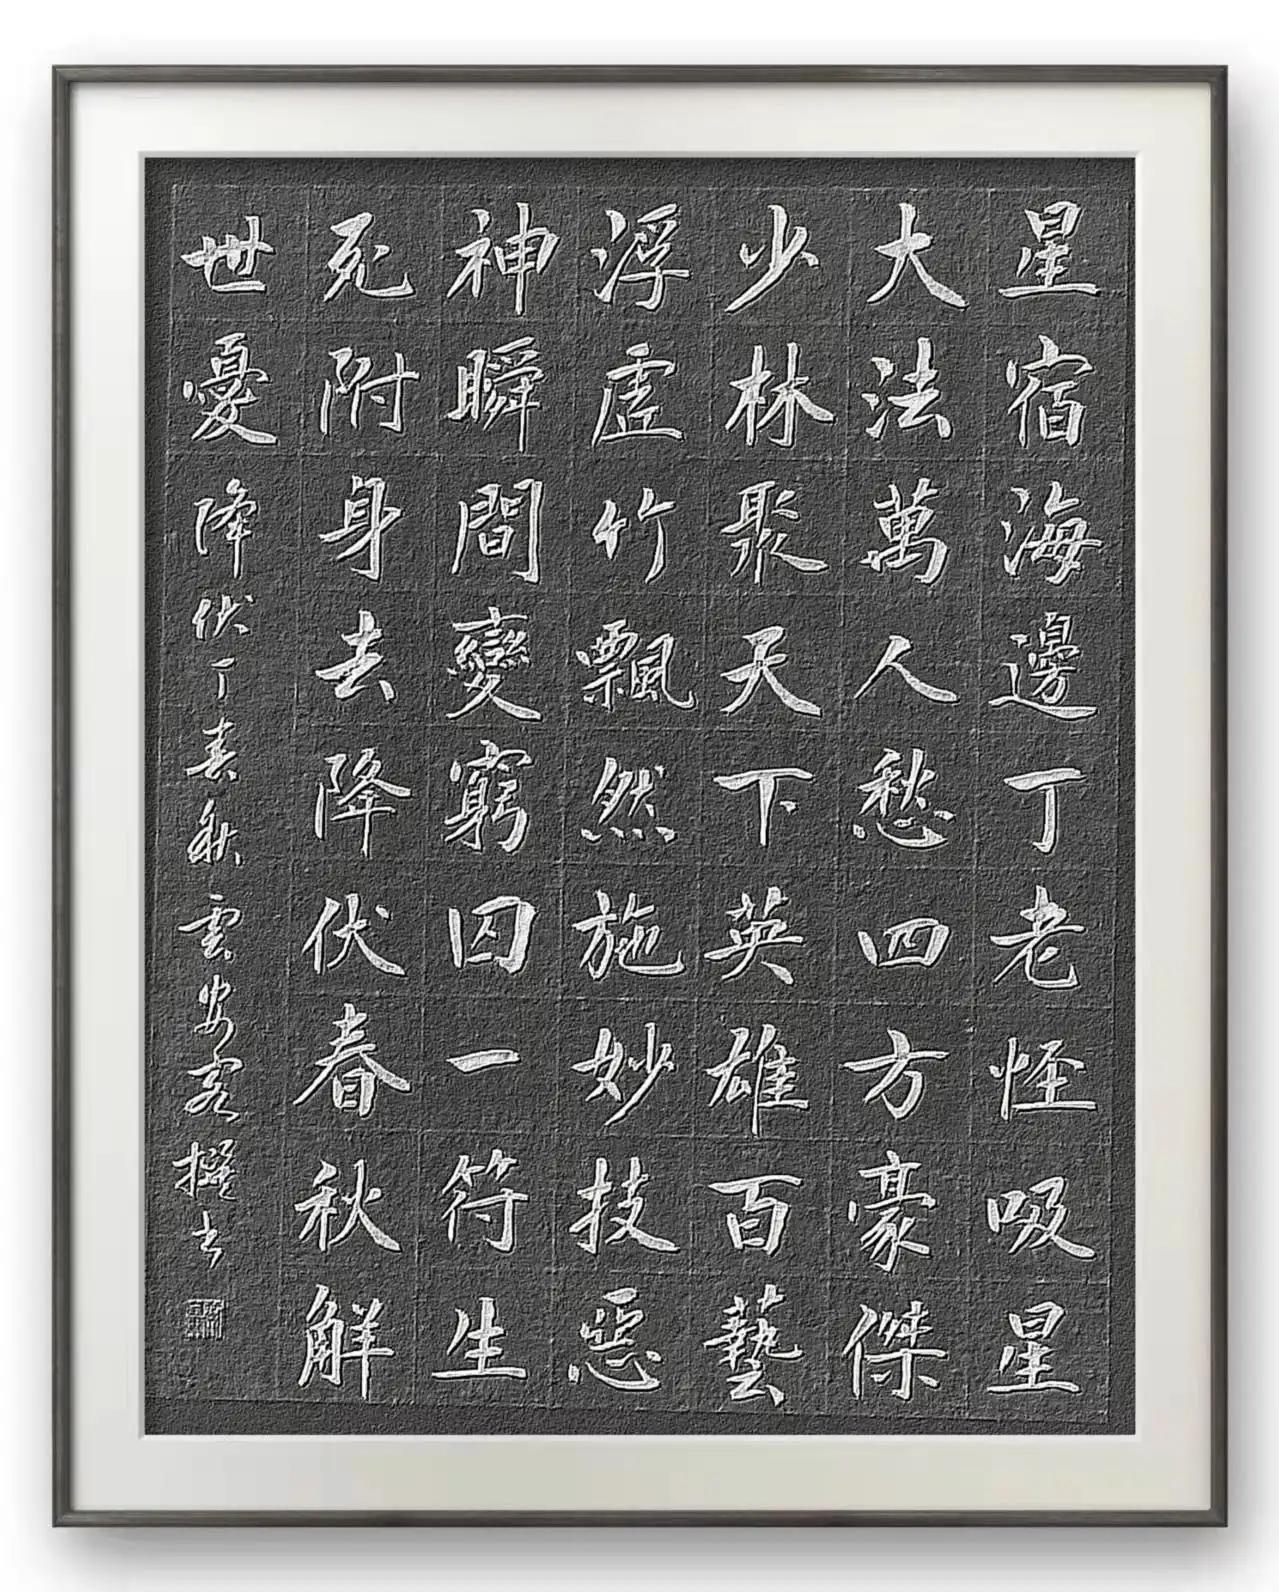 星宿海邊丁老怪吸星
大法萬人愁四方豪傑
少林聚天下英雄百藝
浮虛竹飄然施妙技惡
神瞬間變窮囚一符生
死附身去降伏春秋解
世憂 降伏丁春秋 雲安客撰书